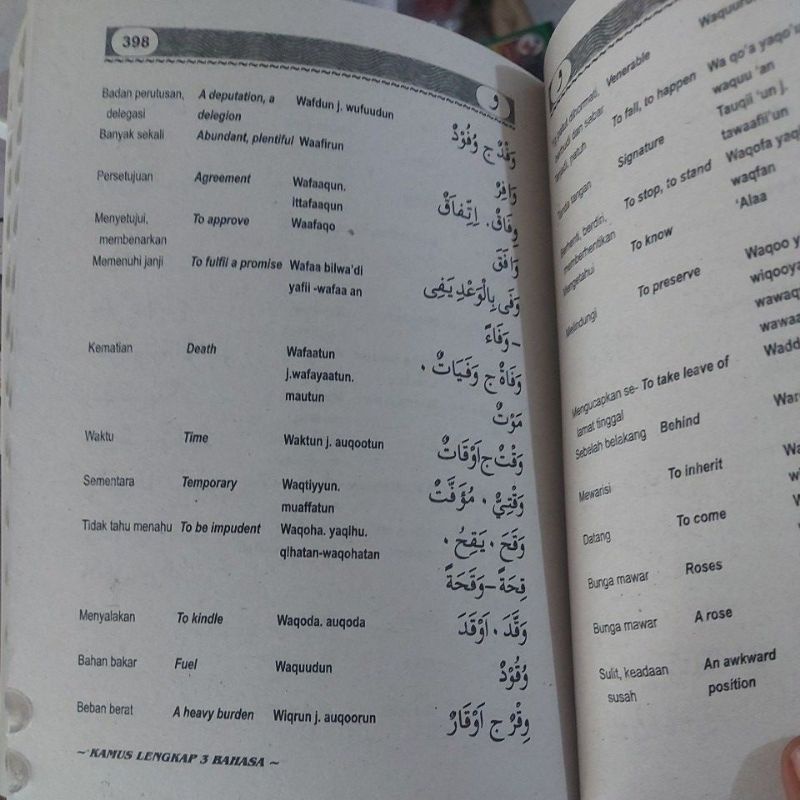 398
و
Badan perutusan, A deputation, a Wafdun j. wufuudun وَفْدٌ ج وُفُوْدٌ
delegasi delegion
Banyak sekali Abundant, plentiful Waafirun وَافِرٌ
Persetujuan Agreement Wafaaqun. وِفَاقٌ. اِتِّفَاقٌ
ittafaaqun
Menyetujui, To approve Waafaqo وَافَقَ
membenarkan
Memenuhi janji To fulfil a promise Wafaa bilwa'di وَفَى بِالْوَعْدِ يَفِى
yafii -wafaa an -وَفَاءً
Kematian Death Wafaatun وَفَاةٌ ج وَفَيَاتٌ.
j.wafayaatun. مَوْتٌ
mautun
Waktu Time Waktun j. auqootun وَقْتٌ ج اَوْقَاتٌ
Sementara Temporary Waqtiyyun. وَقْتِيٌّ. مُؤَقَّتٌ
muaffatun
Tidak tahu menahu To be impudent Waqoha. yaqihu. وَقَحَ. يَقِحُ.
qihatan-waqohatan قِحَةً-وَقَحَةً
Menyalakan To kindle Waqoda. auqoda وَقَّدَ. اَوْقَدَ
Bahan bakar Fuel Waquudun وُقُوْدٌ
Beban berat A heavy burden Wiqrun j. auqoorun وِقْرٌ ج اَوْقَارٌ
~ KAMUS LENGKAP 3 BAHASA ~
و
Venerable
To fall, to happen Wa qo'a
waquu 'an
Tanda tangan Signature Tauqii 'un j.
tawaafii'un
Berhenti, berdiri, To stop, to stand Waqofa
memberhentikan waqfan
Mengetahui To know 'Alaa
Melindungi To preserve Waqoo
Mengucapkan se- To take leave of
lamat tinggal
Sebelah belakang Behind
Mewarisi To inherit
Datang To come
Bunga mawar Roses
Bunga mawar A rose
Sulit, keadaan An awkward
susah position